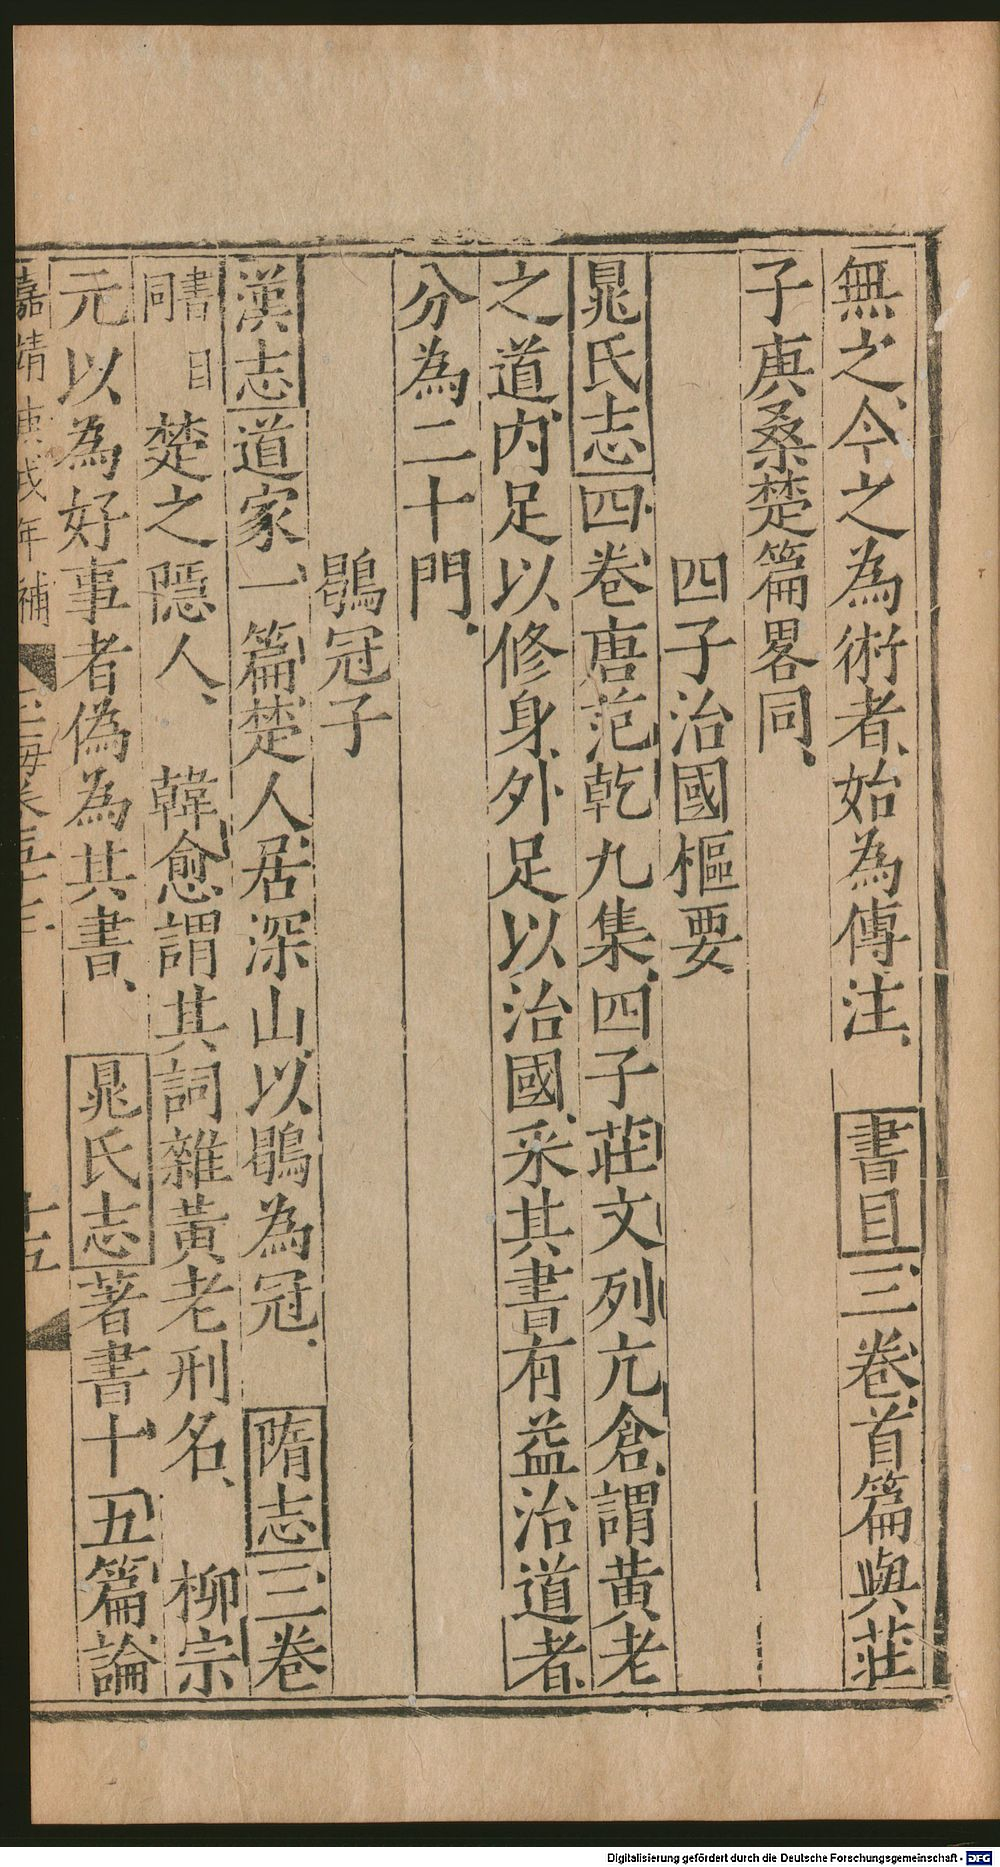 無之今之為術者始為傳注　書目三卷首篇與莊
子庚桑楚篇畧同
四子治國樞要
晁氏志四卷唐范乾九集四子莊文列亢倉謂黄老
之道内足以修身外足以治國采其書有益治道者
分為二十門
鶡冠子
漢志道家一篇楚人居深山以鶡為冠　隋志三卷
書目
同
楚之隱人　韓愈謂其詞雜黄老刑名　柳宗
元以為好事者偽為其書　晁氏志著書十五篇論
嘉靖庚戌年補　玉海卷五十三　十五
Digitalisierung gefördert durch die Deutsche Forschungsgemeinschaft - DFG